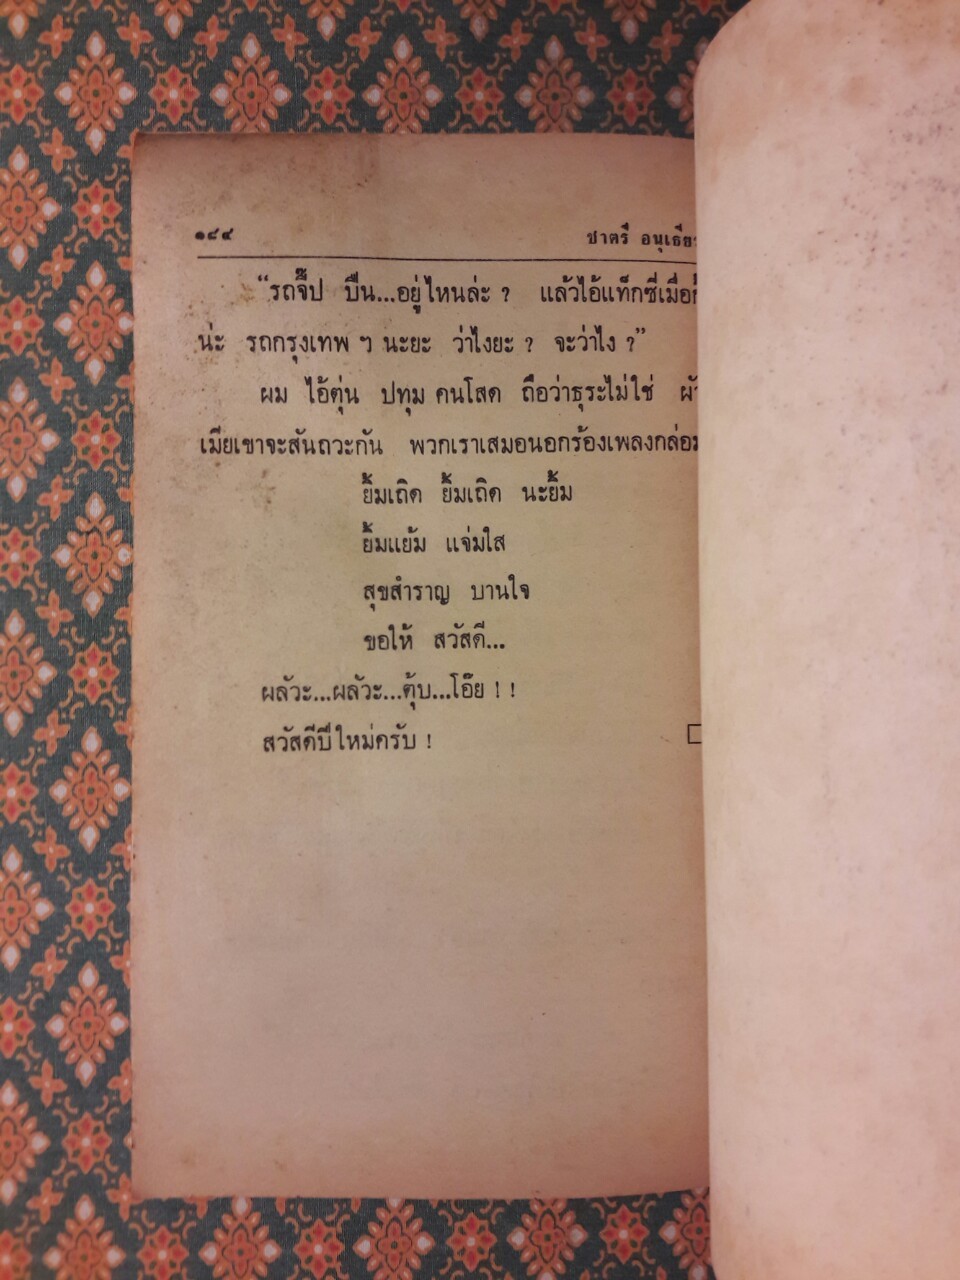 ๑๘๔ ชาตรี อนุเธียร
“รถจี๊ป ปืน...อยู่ไหนล่ะ ? แล้วไอ้แท็กซี่เมื่อกี้
น่ะ รถกรุงเทพ ฯ นะยะ ว่าไงยะ ? จะว่าไง ?”
ผม ไอ้ตุ่น ปทุม คนโสด ถือว่าธุระไม่ใช่ ผัว
เมียเขาจะสันถวะกัน พวกเราเสมอนอกร้องเพลงกล่อม
ยิ้มเถิด ยิ้มเถิด นะยิ้ม
ยิ้มแย้ม แจ่มใส
สุขสำราญ บานใจ
ขอให้ สวัสดี...
ผลัวะ...ผลัวะ...ตุ้บ...โอ๊ย ! !
สวัสดีปีใหม่ครับ !